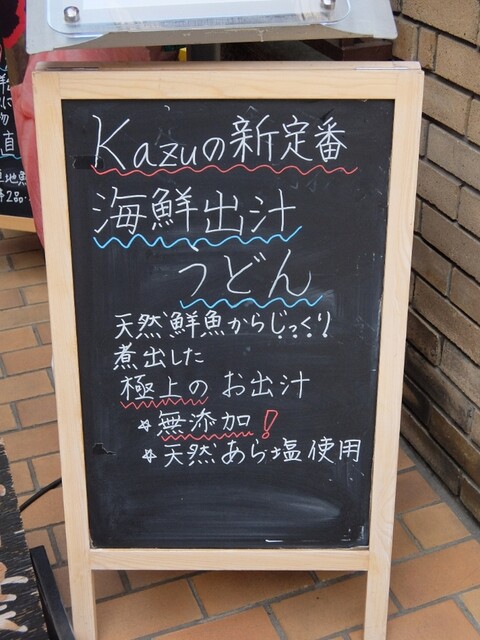 Kazuの新定番
海鮮出汁
うどん
天然鮮魚からじっくり
煮出した
極上のお出汁
☆無添加!
☆天然あら塩使用
直